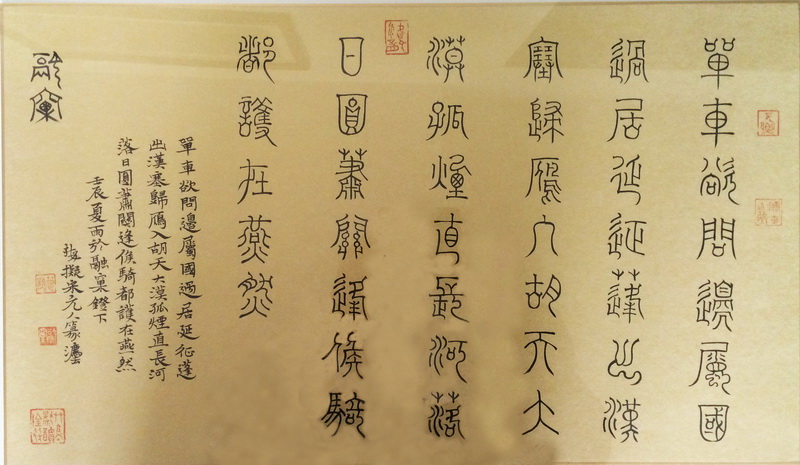 單車欲問邊屬國
過居延征蓬出漢
塞歸鴈入胡天大
漠孤煙直長河落
日圓蕭關逢候騎
都護在燕然
單車欲問邊屬國過居延征蓬
出漢塞歸鴈入胡天大漠孤煙直長河
落日圓蕭關逢候騎都護在燕然
壬辰夏雨於融鐙下
擬米元
融